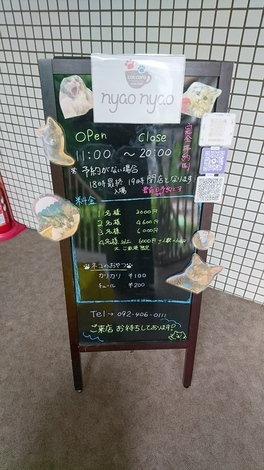 nyao nyao
OPen Close
11:00 〜 20:00
完全予約制
※ 予約がない場合
18時最終 19時閉店となります
入場
料金
1名様 2000円
2名様 4600円
3名様 6000円
ネコのおやつ
カリカリ ¥100
チュール ¥200
Tel→ 092-406-0111
ご来店お待ちしております!